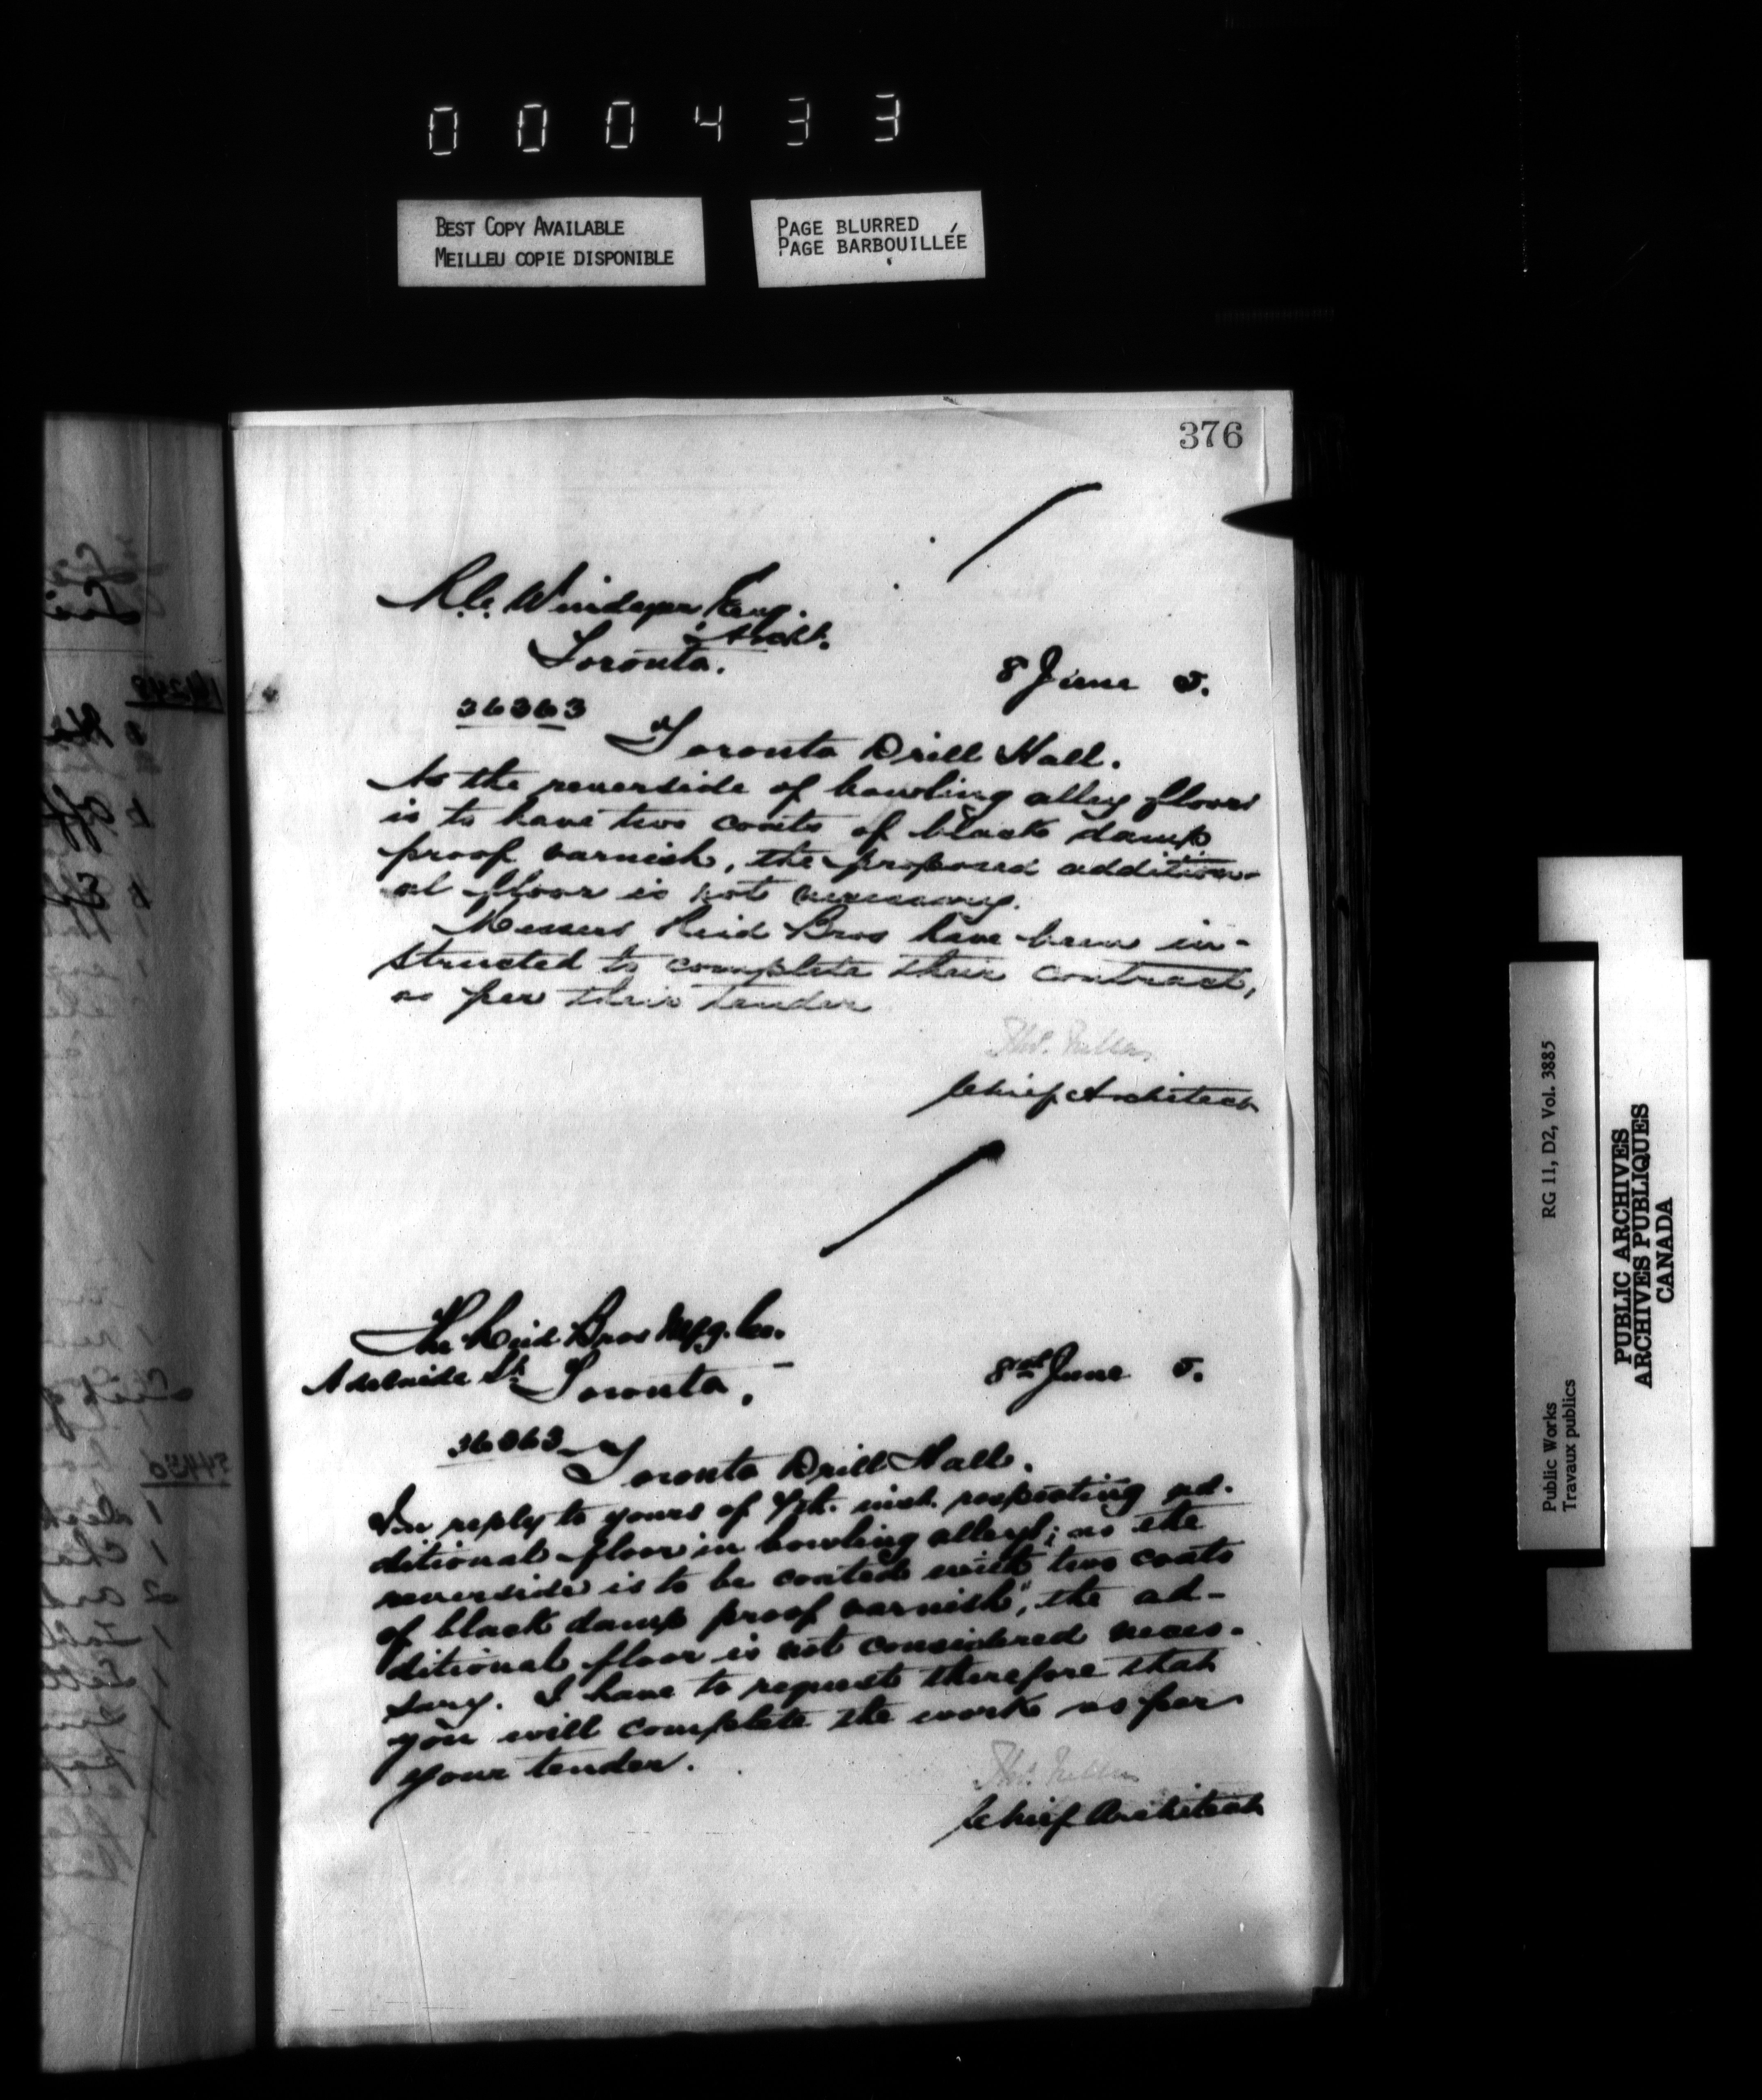 000433
BEST COPY AVAILABLE
MEILLEU COPIE DISPONIBLE
PAGE BLURRED
PAGE BARBOUILLÉE
376
R.C. Windeyer Esq.
Archt.
Toronto.
8 June 5.
36363
Toronto Drill Hall.
As the reverside of bowling alley floors
is to have two coats of black damp
proof varnish, the proposed addition-
al floor is not necessary.
Messrs Reid Bros have been in-
structed to complete their contract,
as per their tender
Thos. Fuller
Chief Architect
The Reid Bros Mfg. Co.
Adelaide St. Toronto.
8th June 5.
36363
Toronto Drill Hall.
In reply to yours of 7th. inst. respecting ad-
ditional floor in bowling alleys; as the
reverside is to be coated with two coats
of black damp proof varnish", the ad-
ditional floor is not considered neces-
sary. I have to request therefore that
you will complete the work as per
your tender.
Thos. Fuller
Chief Architect
Public Works
Travaux publics
RG 11, D2, Vol. 3885
PUBLIC ARCHIVES
ARCHIVES PUBLIQUES
CANADA